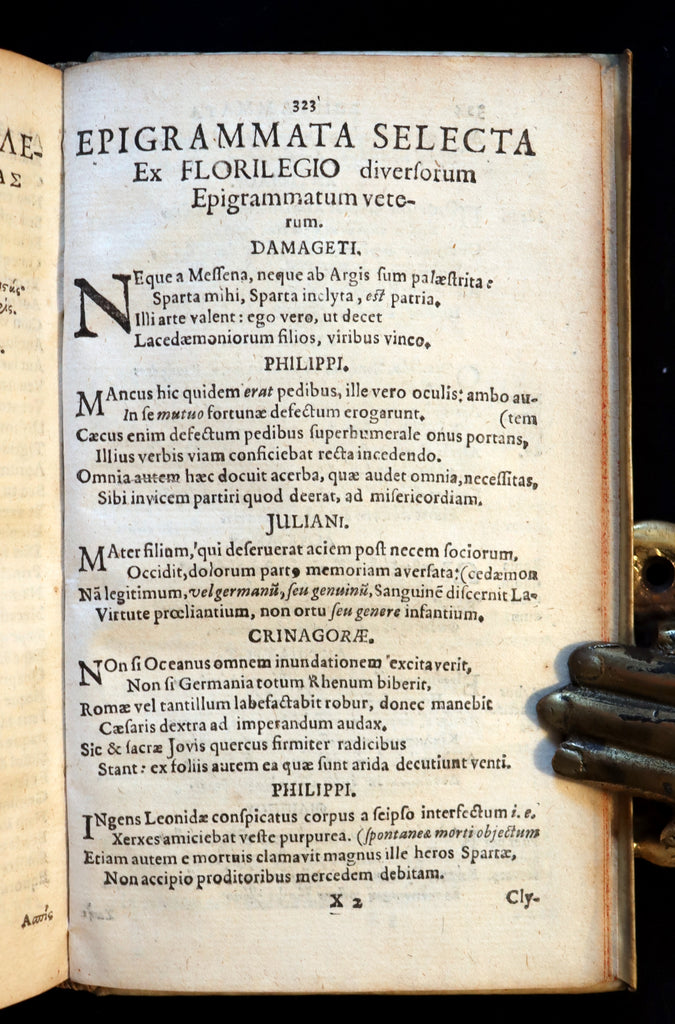 323
EPIGRAMMATA SELECTA
Ex FLORILEGIO diverſorum
Epigrammatum vete-
rum.
DAMAGETI.
NEque a Meſſena, neque ab Argis ſum palæſtrita:
Sparta mihi, Sparta inclyta, est patria.
Illi arte valent: ego vero, ut decet
Lacedæmoniorum filios, viribus vinco.
PHILIPPI.
MAncus hic quidem erat pedibus, ille vero oculis: ambo au-
In ſe mutuo fortunæ defectum erogarunt. (tem
Cæcus enim defectum pedibus ſuperhumerale onus portans,
Illius verbis viam conficiebat recta incedendo.
Omnia autem hæc docuit acerba, quæ audet omnia, neceſſitas,
Sibi invicem partiri quod deerat, ad miſericordiam.
JULIANI.
MAter filium, qui deſeruerat aciem poſt necem ſociorum,
Occidit, dolorum partꝰ memoriam averſata: (cedæmon
Nã legitimum, vel germanũ, ſeu genuinũ, Sanguinẽ diſcernit La-
Virtute prœliantium, non ortu ſeu genere infantium.
CRINAGORÆ.
NOn ſi Oceanus omnem inundationem excitaverit,
Non ſi Germania totum Rhenum biberit,
Romæ vel tantillum labefactabit robur, donec manebit
Cæſaris dextra ad imperandum audax.
Sic & ſacræ Jovis quercus firmiter radicibus
Stant: ex foliis autem ea quæ ſunt arida decutiunt venti.
PHILIPPI.
INgens Leonidæ conſpicatus corpus a ſeipſo interfectum i. e.
Xerxes amiciebat veſte purpurea. (ſpontaneæ morti objectum
Etiam autem e mortuis clamavit magnus ille heros Spartæ,
Non accipio proditoribus mercedem debitam.
X 2 Cly-